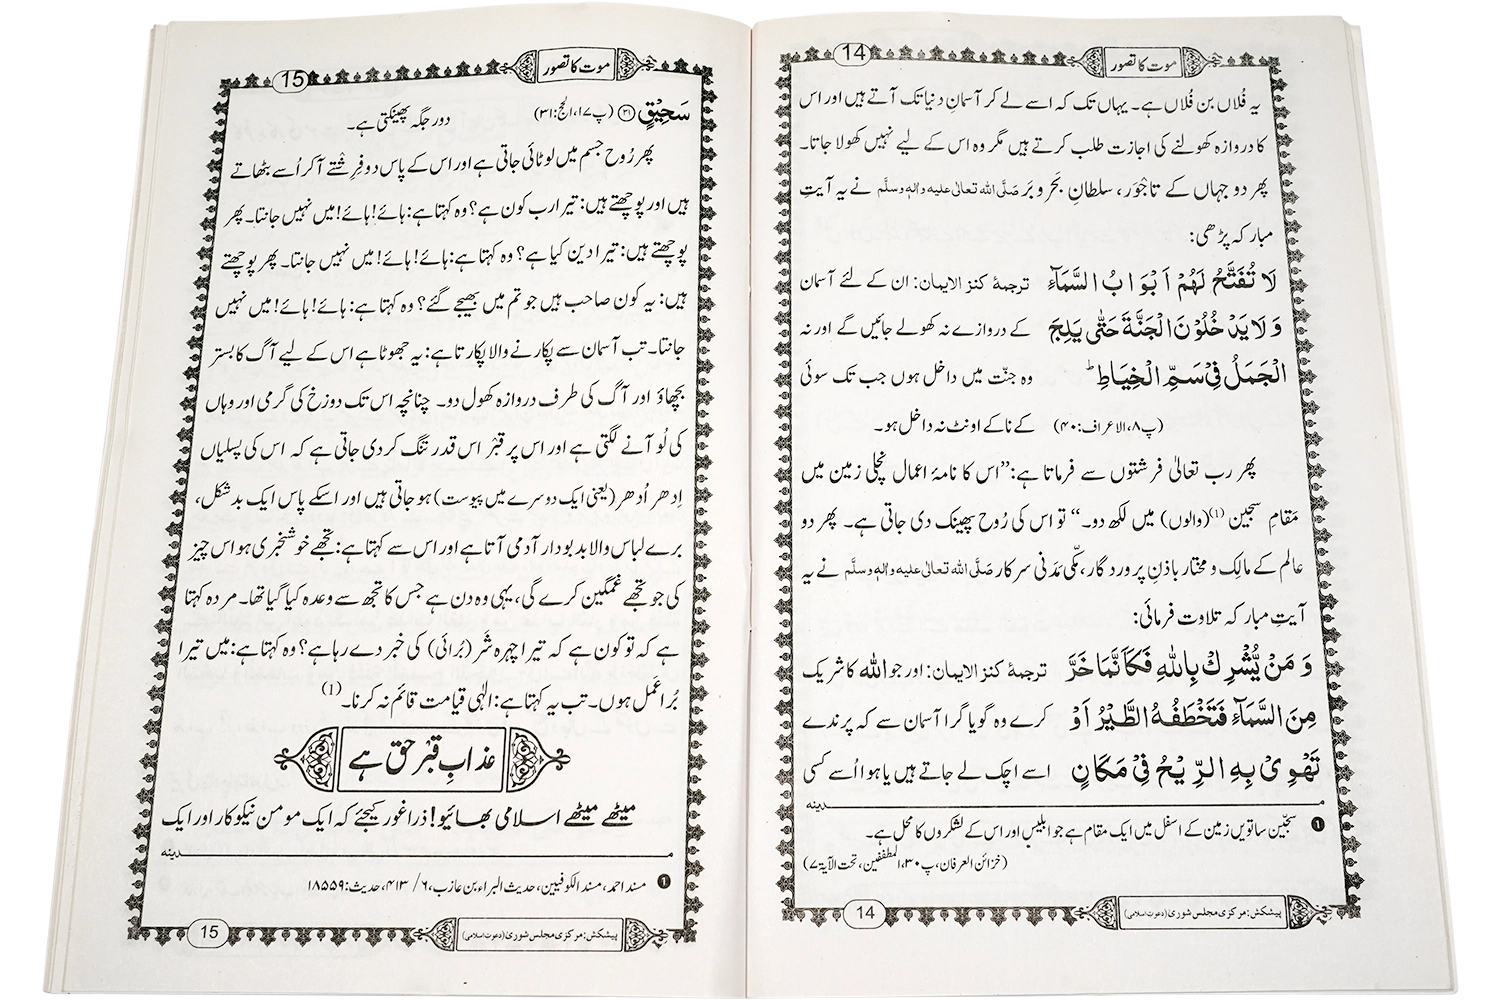 موت کا تصور
14
یہ فُلاں بن فُلاں ہے۔ یہاں تک کہ اسے لے کر آسمانِ دنیا تک آتے ہیں اور اس
کا دروازہ کھولنے کی اجازت طلب کرتے ہیں مگر وہ اس کے لیے نہیں کھولا جاتا۔
پھر دو جہاں کے تاجْوَر، سلطانِ بَحر و بَر صَلَّی اللہ تعالیٰ علیہ واٰلہٖ وسلَّم نے یہ آیتِ
مبارکہ پڑھی:
لَا تُفَتَّحُ لَهُمْ اَبْوَابُ السَّمَآءِ ترجمۂ کنز الایمان: ان کے لئے آسمان
وَ لَا یَدْخُلُوْنَ الْجَنَّةَ حَتّٰى یَلِجَ کے دروازے نہ کھولے جائیں گے اور نہ
الْجَمَلُ فِیْ سَمِّ الْخِیَاطِؕ وہ جنّت میں داخل ہوں جب تک سوئی
(پ۸، الاعراف: ۴۰) کے ناکے اونٹ نہ داخل ہو۔
پھر رب تعالیٰ فرشتوں سے فرماتا ہے: ”اس کا نامۂ اعمال نچلی زمین میں
مَقامِ سجین (1)(والوں) میں لکھ دو۔“ تو اس کی رُوح پھینک دی جاتی ہے۔ پھر دو
عالم کے مالِک و مختار باذنِ پروردگار، مکّی مَدَنی سرکار صَلَّی اللہ تعالیٰ علیہ واٰلہٖ وسلَّم نے یہ
آیتِ مبارکہ تلاوت فرمائی:
وَ مَنْ یُّشْرِكْ بِاللّٰهِ فَكَاَنَّمَا خَرَّ ترجمۂ کنز الایمان: اور جو اللہ کا شریک
مِنَ السَّمَآءِ فَتَخْطَفُهُ الطَّیْرُ اَوْ کرے وہ گویا گرا آسمان سے کہ پرندے
تَهْوِیْ بِهِ الرِّیْحُ فِیْ مَكَانٍ اسے اچک لے جاتے ہیں یا ہوا اُسے کسی
مـــدینہ
1 سِجّین ساتویں زمین کے اسفل میں ایک مقام ہے جو ابلیس اور اس کے لشکروں کا محل ہے۔
(خزائن العرفان، پ۳۰، المطففین، تحت الآیۃ ۷)
پیشکش: مرکزی مجلس شوریٰ (دعوتِ اسلامی)
14
موت کا تصور
15
سَحِیْقٍ(۳۱) (پ۱۷، الحج: ۳۱) دور جگہ پھینکتی ہے۔
پھر رُوح جسم میں لوٹائی جاتی ہے اور اس کے پاس دو فِرِشتے آکر اُسے بٹھاتے
ہیں اور پوچھتے ہیں: تیرا رب کون ہے؟ وہ کہتا ہے: ہائے! ہائے! میں نہیں جانتا۔ پھر
پوچھتے ہیں: تیرا دین کیا ہے؟ وہ کہتا ہے: ہائے! ہائے! میں نہیں جانتا۔ پھر پوچھتے
ہیں: یہ کون صاحب ہیں جو تم میں بھیجے گئے؟ وہ کہتا ہے: ہائے! ہائے! میں نہیں
جانتا۔ تب آسمان سے پکارنے والا پکارتا ہے: یہ جھوٹا ہے اس کے لیے آگ کا بستر
بچھاؤ اور آگ کی طرف دروازہ کھول دو۔ چنانچہ اس تک دوزخ کی گرمی اور وہاں
کی لُو آنے لگتی ہے اور اس پر قَبْر اس قدر تنگ کردی جاتی ہے کہ اس کی پسلیاں
اِدھر اُدھر (یعنی ایک دوسرے میں پیوست) ہو جاتی ہیں اور اسکے پاس ایک بدشکل،
برے لباس والا بدبودار آدمی آتا ہے اور اس سے کہتا ہے: تجھے خوشخبری ہو اس چیز
کی جو تجھے غمگین کرے گی، یہی وہ دن ہے جس کا تجھ سے وعدہ کیا گیا تھا۔ مردہ کہتا
ہے کہ تو کون ہے کہ تیرا چہرہ شَر (بُرائی) کی خبر دے رہا ہے؟ وہ کہتا ہے: میں تیرا
بُرا عَمَل ہوں۔ تب یہ کہتا ہے: الٰہی قیامت قائم نہ کرنا۔(1)
عذابِ قبْر حق ہے
میٹھے میٹھے اسلامی بھائیو! ذرا غور کیجئے کہ ایک مومن نیکوکار اور ایک
مـــدینہ
1 مسند احمد، مسند الکوفیین، حدیث البراء بن عازب، ۶/ ۴۱۳، حدیث: ۱۸۵۵۹
پیشکش: مرکزی مجلس شوریٰ (دعوتِ اسلامی)
15